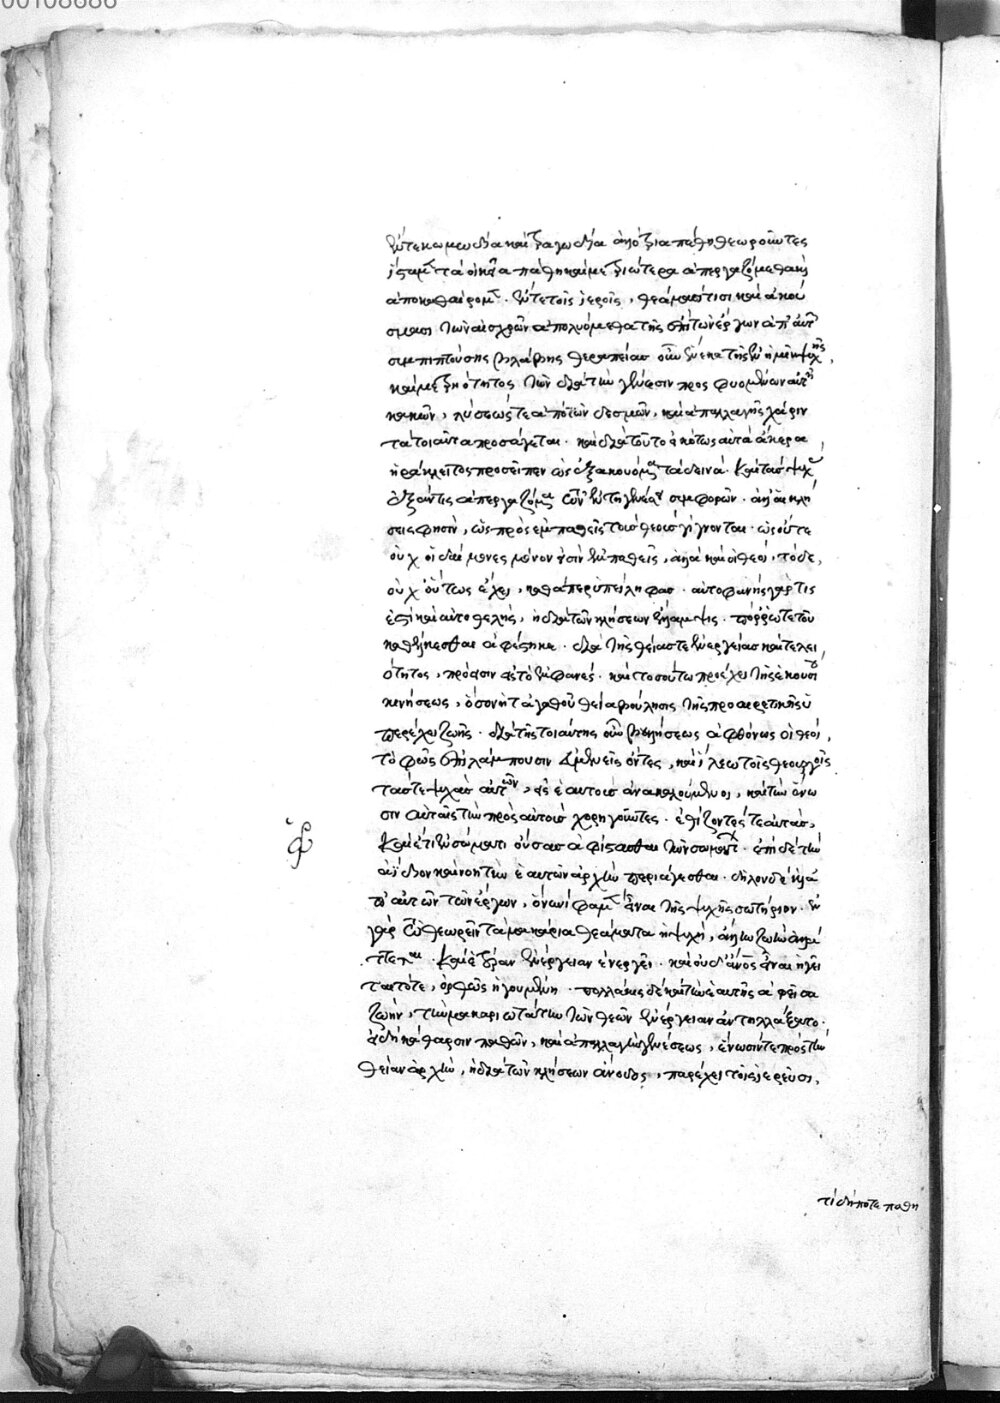 00108686
ἔν τε κωμῳδία καὶ τραγῳδία ἀλλότρια πάθη θεωροῦντες
ἵσταμεν τὰ οἰκεῖα πάθη καὶ μετριώτερα ἀπεργαζόμεθα καὶ
ἀποκαθαίρομεν. ἔν τε τοῖς ἱεροῖς, θεάμασί τισι καὶ ἀκού
σμασι τῶν αἰσχρῶν ἀπολυόμεθα τῆς ἐπὶ τῶν ἔργων ἀπ' αὐτῶν
συμπιπτούσης βλάβης θεραπείας οὖν ἕνεκα τῆς ἐν ἡμῖν ψυχῆς,
καὶ μετριότητος τῶν διὰ τὴν γένεσιν προσφυομένων αὐτῇ
κακῶν, λύσεώς τε ἀπὸ τῶν δεσμῶν, καὶ ἀπαλλαγῆς χάριν
τὰ τοιαῦτα προσάγεται. καὶ διὰ τοῦτο εἰκότως αὐτὰ ἄκεα
ἡράκλειτος προσεῖπεν ὡς ἐξακουόμενα τὰ δεινὰ. καὶ τὰς ψυχὰς
ἐξάντεις ἀπεργαζόμενα τῶν ἐν τῇ γενέσει συμφορῶν. ἀλλ' αἱ κλή
σεις φησὶν, ὡς πρὸς ἐμπαθεῖς τοὺς θεοὺς γίγνονται. ὥστε
οὐχ οἱ δαίμονες μόνον εἰσὶν ἐμπαθεῖς, ἀλλὰ καὶ οἱ θεοί. τὸ δὲ,
οὐχ οὕτως ἔχει, καθάπερ ὑπείληφας. αὐτοφανὴς γάρ τις
ἐστὶ καὶ αὐτοθελὴς, ἡ διὰ τῶν κλήσεων ἔλλαμψις. πόρρω τε τοῦ
καθέλκεσθαι ἀφέστηκε. διὰ τῆς θείας τε ἐνεργείας καὶ τελει
ότητος, πρόεισιν εἰς τὸ ἐμφανές. καὶ τοσούτῳ προέχει τῆς ἑκουσίου
κινήσεως, ὅσον ἡ τἀγαθοῦ θεία βούλησις τῆς προαιρετικῆς ὑ
περέχει ζωῆς. διὰ τῆς τοιαύτης οὖν βουλήσεως ἀφθόνως οἱ θεοί,
τὸ φῶς ἐπιλάμπουσιν εὐμενεῖς ὄντες, καὶ ἵλεῳ τοῖς θεουργοῖς
τάς τε ψυχὰς αὐτῶν, εἰς ἑαυτοὺς ἀνακαλούμενοι, καὶ τὴν ἕνω
σιν αὐταῖς τὴν πρὸς αὐτοὺς χορηγοῦντες. ἐθίζοντές τε αὐτὰς,
καὶ ἔτι ἐν σώματι οὔσας ἀφίστασθαι τῶν σωμάτων. ἐπὶ δὲ τὴν
ἀΐδιον καὶ νοητὴν ἑαυτῶν ἀρχὴν περιάγεσθαι. δῆλον δὲ καὶ ἀ
π' αὐτῶν τῶν ἔργων, ὃ νυνί φαμεν εἶναι τῆς ψυχῆς σωτήριον. ἐν
γὰρ τῷ θεωρεῖν τὰ μακάρια θεάματα ἡ ψυχὴ, ἄλλην ζωὴν ἀλλάτ
τεται. καὶ ἑτέραν ἐνέργειαν ἐνεργεῖ. καὶ οὐδ' ἄνθρωπος εἶναι ἡγεῖ
ται τότε, ὀρθῶς ἡγουμένη. πολλάκις δὲ καὶ τὴν ἑαυτῆς ἀφεῖσα
ζωὴν, τὴν μακαριωτάτην τῶν θεῶν ἐνέργειαν ἀντηλλάξατο.
εἰ δὴ κάθαρσιν παθῶν, καὶ ἀπαλλαγὴν γενέσεως, ἕνωσίν τε πρὸς τὴν
θείαν ἀρχὴν, ἡ διὰ τῶν κλήσεων ἄνοδος, παρέχει τοῖς ἱερεῦσι,
τί δήποτε πάθη